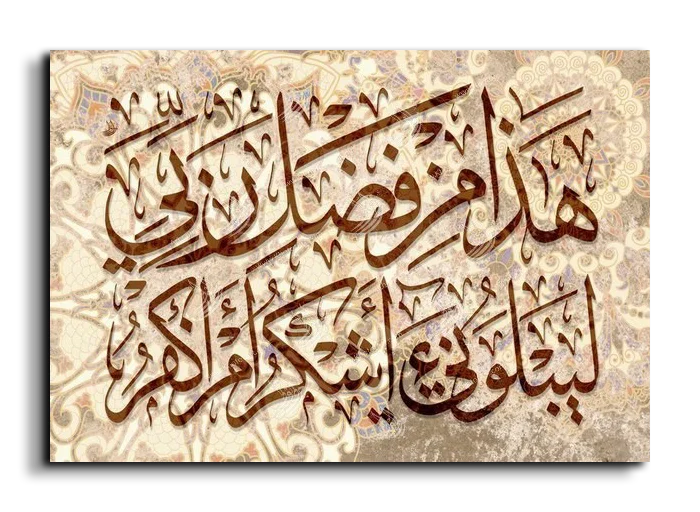 هَذَا مِنْ فَضْلِ رَبِّي
لِيَبْلُوَنِي أَأَشْكُرُ أَمْ أَكْفُرُ